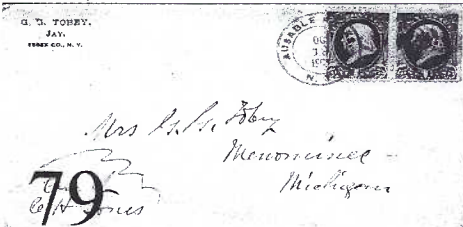 G. G. TOBEY.
JAY.
ESSEX CO., N. Y.
AUSABLE
OC
N. Y.
Mrs G. G. Tobey
Menominee
Michigan
79
C H Jones